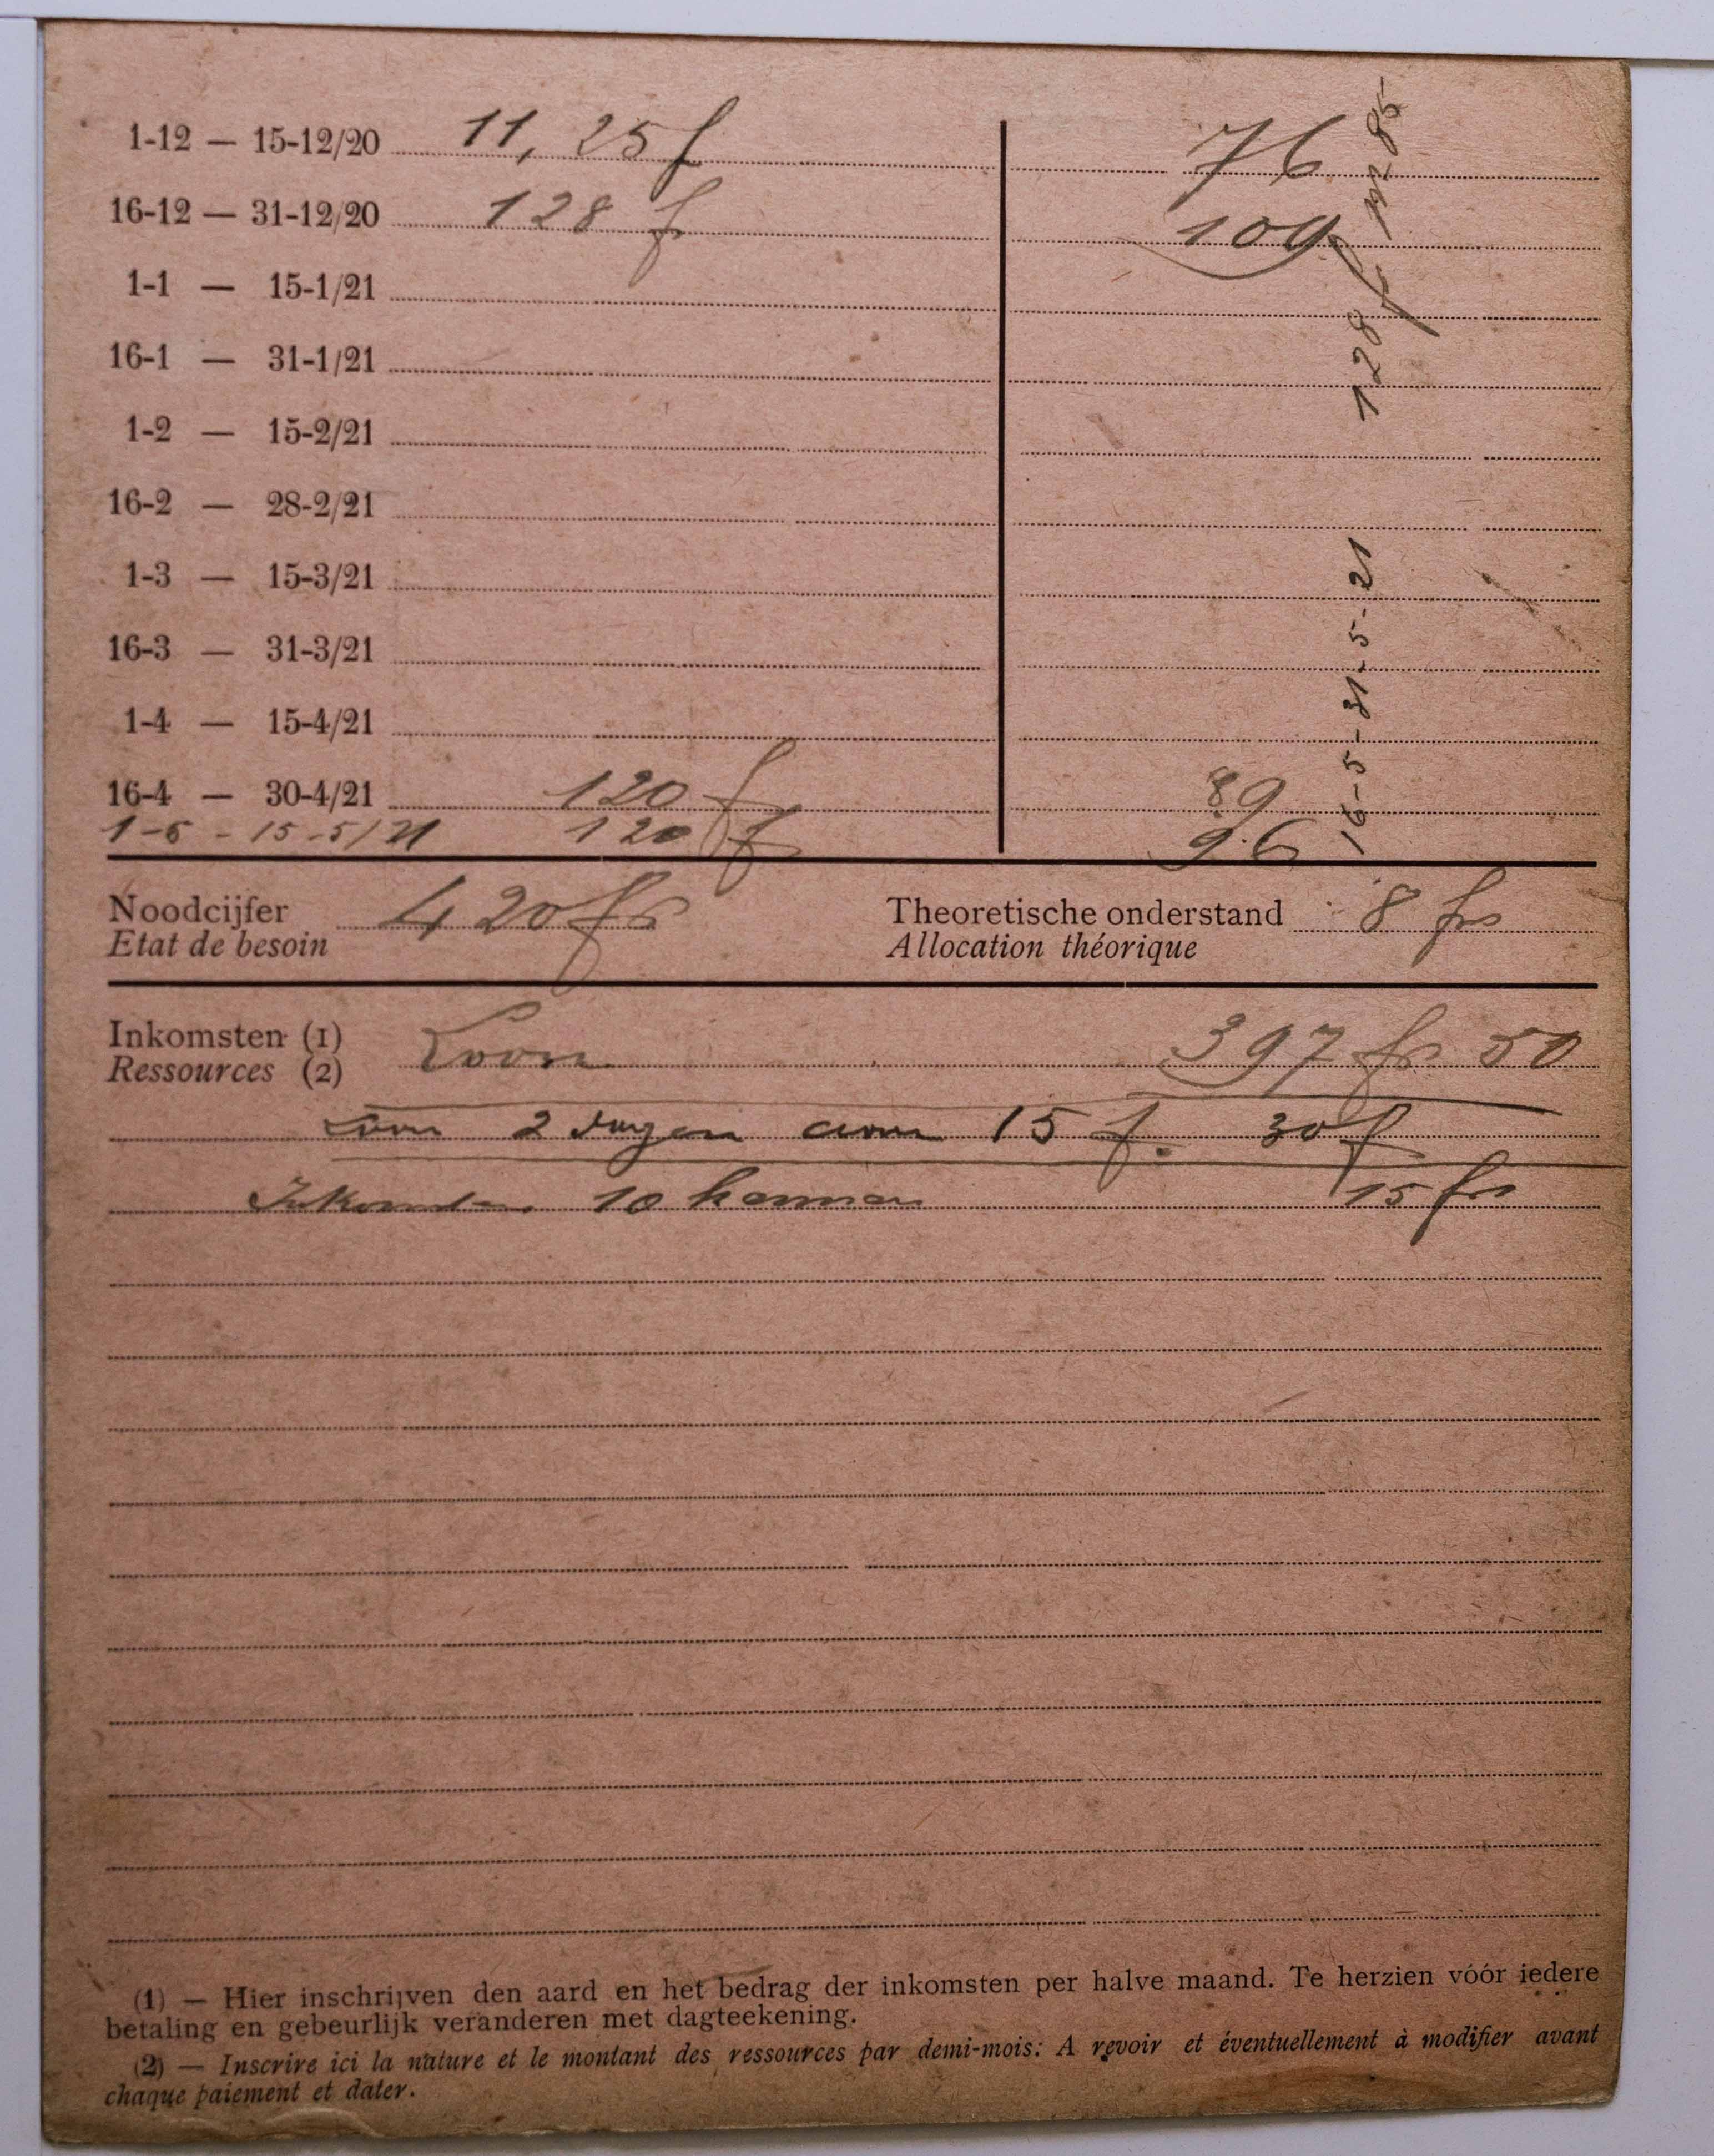 1-12 — 15-12/20 11,25 f 76
16-12 — 31-12/20 128 f 109
1-1 — 15-1/21
16-1 — 31-1/21
1-2 — 15-2/21
16-2 — 28-2/21
1-3 — 15-3/21
16-3 — 31-3/21
1-4 — 15-4/21
16-4 — 30-4/21 120 f 89
1-5 - 15-5/21 120 f 96
16-5-31-5-21 128 f 85
Noodcijfer 420 fr Theoretische onderstand 8 frs
Etat de besoin Allocation théorique
Inkomsten (1) Loon 397 fr 50
Ressources (2)
Loon 2 dagen aan 15 f. 30 f
Inkomsten 10 15 frs
(1) — Hier inschrijven den aard en het bedrag der inkomsten per halve maand. Te herzien vóór iedere
betaling en gebeurlijk veranderen met dagteekening.
(2) — Inscrire ici la nature et le montant des ressources par demi-mois: A revoir et éventuellement à modifier avant
chaque paiement et dater.